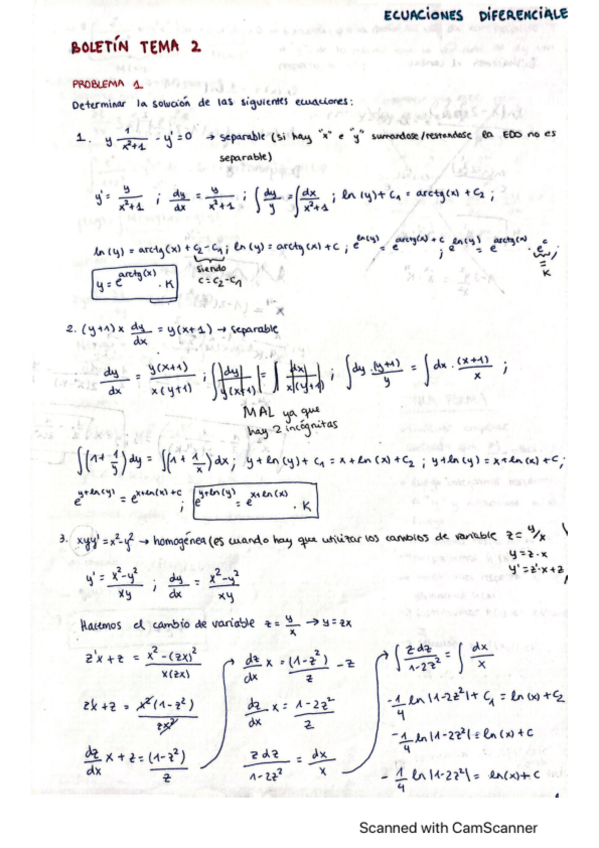 ECUACIONES DIFERENCIALE
BOLETÍN TEMA 2
PROBLEMA 1
Determinar la solución de las siguientes ecuaciones:
1. y 1/(x²+1) - y' = 0 → separable (si hay "x" e "y" sumandose/restandose la EDO no es
separable)
y' = y/(x²+1) ; dy/dx = y/(x²+1) ; ∫ dy/y = ∫ dx/(x²+1) ; ln(y) + C₁ = arctg(x) + C₂ ;
ln(y) = arctg(x) + C₂ - C₁ ; ln(y) = arctg(x) + C ; e^ln(y) = e^(arctg(x)+C) ; e^ln(y) = e^arctg(x) · e^C ;
siendo
C = C₂ - C₁
= K
y = e^arctg(x) · K
2. (y+1) x dy/dx = y(x+1) → separable
dy/dx = y(x+1)/x(y+1) ; ∫ dy/y(x+1) = ∫ dx/x(y+1) ; ∫ dy · (y+1)/y = ∫ dx · (x+1)/x ;
MAL ya que
hay 2 incógnitas
∫(1 + 1/y) dy = ∫(1 + 1/x) dx ; y + ln(y) + C₁ = x + ln(x) + C₂ ; y + ln(y) = x + ln(x) + C ;
e^(y+ln(y)) = e^(x+ln(x)+C) ; e^(y+ln(y)) = e^(x+ln(x)) · K
3. xyy' = x² - y² → homogénea (es cuando hay que utilizar los cambios de variable z = y/x
y = z·x
y' = z'·x + z
y' = (x²-y²)/xy ; dy/dx = (x²-y²)/xy
Hacemos el cambio de variable z = y/x → y = zx
z'x + z = (x² - (zx)²)/x(zx)
z'x + z = x²(1-z²)/zx²
dz/dx x + z = (1-z²)/z
dz/dx x = (1-z²)/z - z
dz/dx x = (1-2z²)/z
z dz/(1-2z²) = dx/x
∫ z dz/(1-2z²) = ∫ dx/x
-1/4 ln|1-2z²| + C₁ = ln(x) + C₂
-1/4 ln|1-2z²| = ln(x) + C
-1/4 ln|1-2z²| = ln(x) + C
Scanned with CamScanner